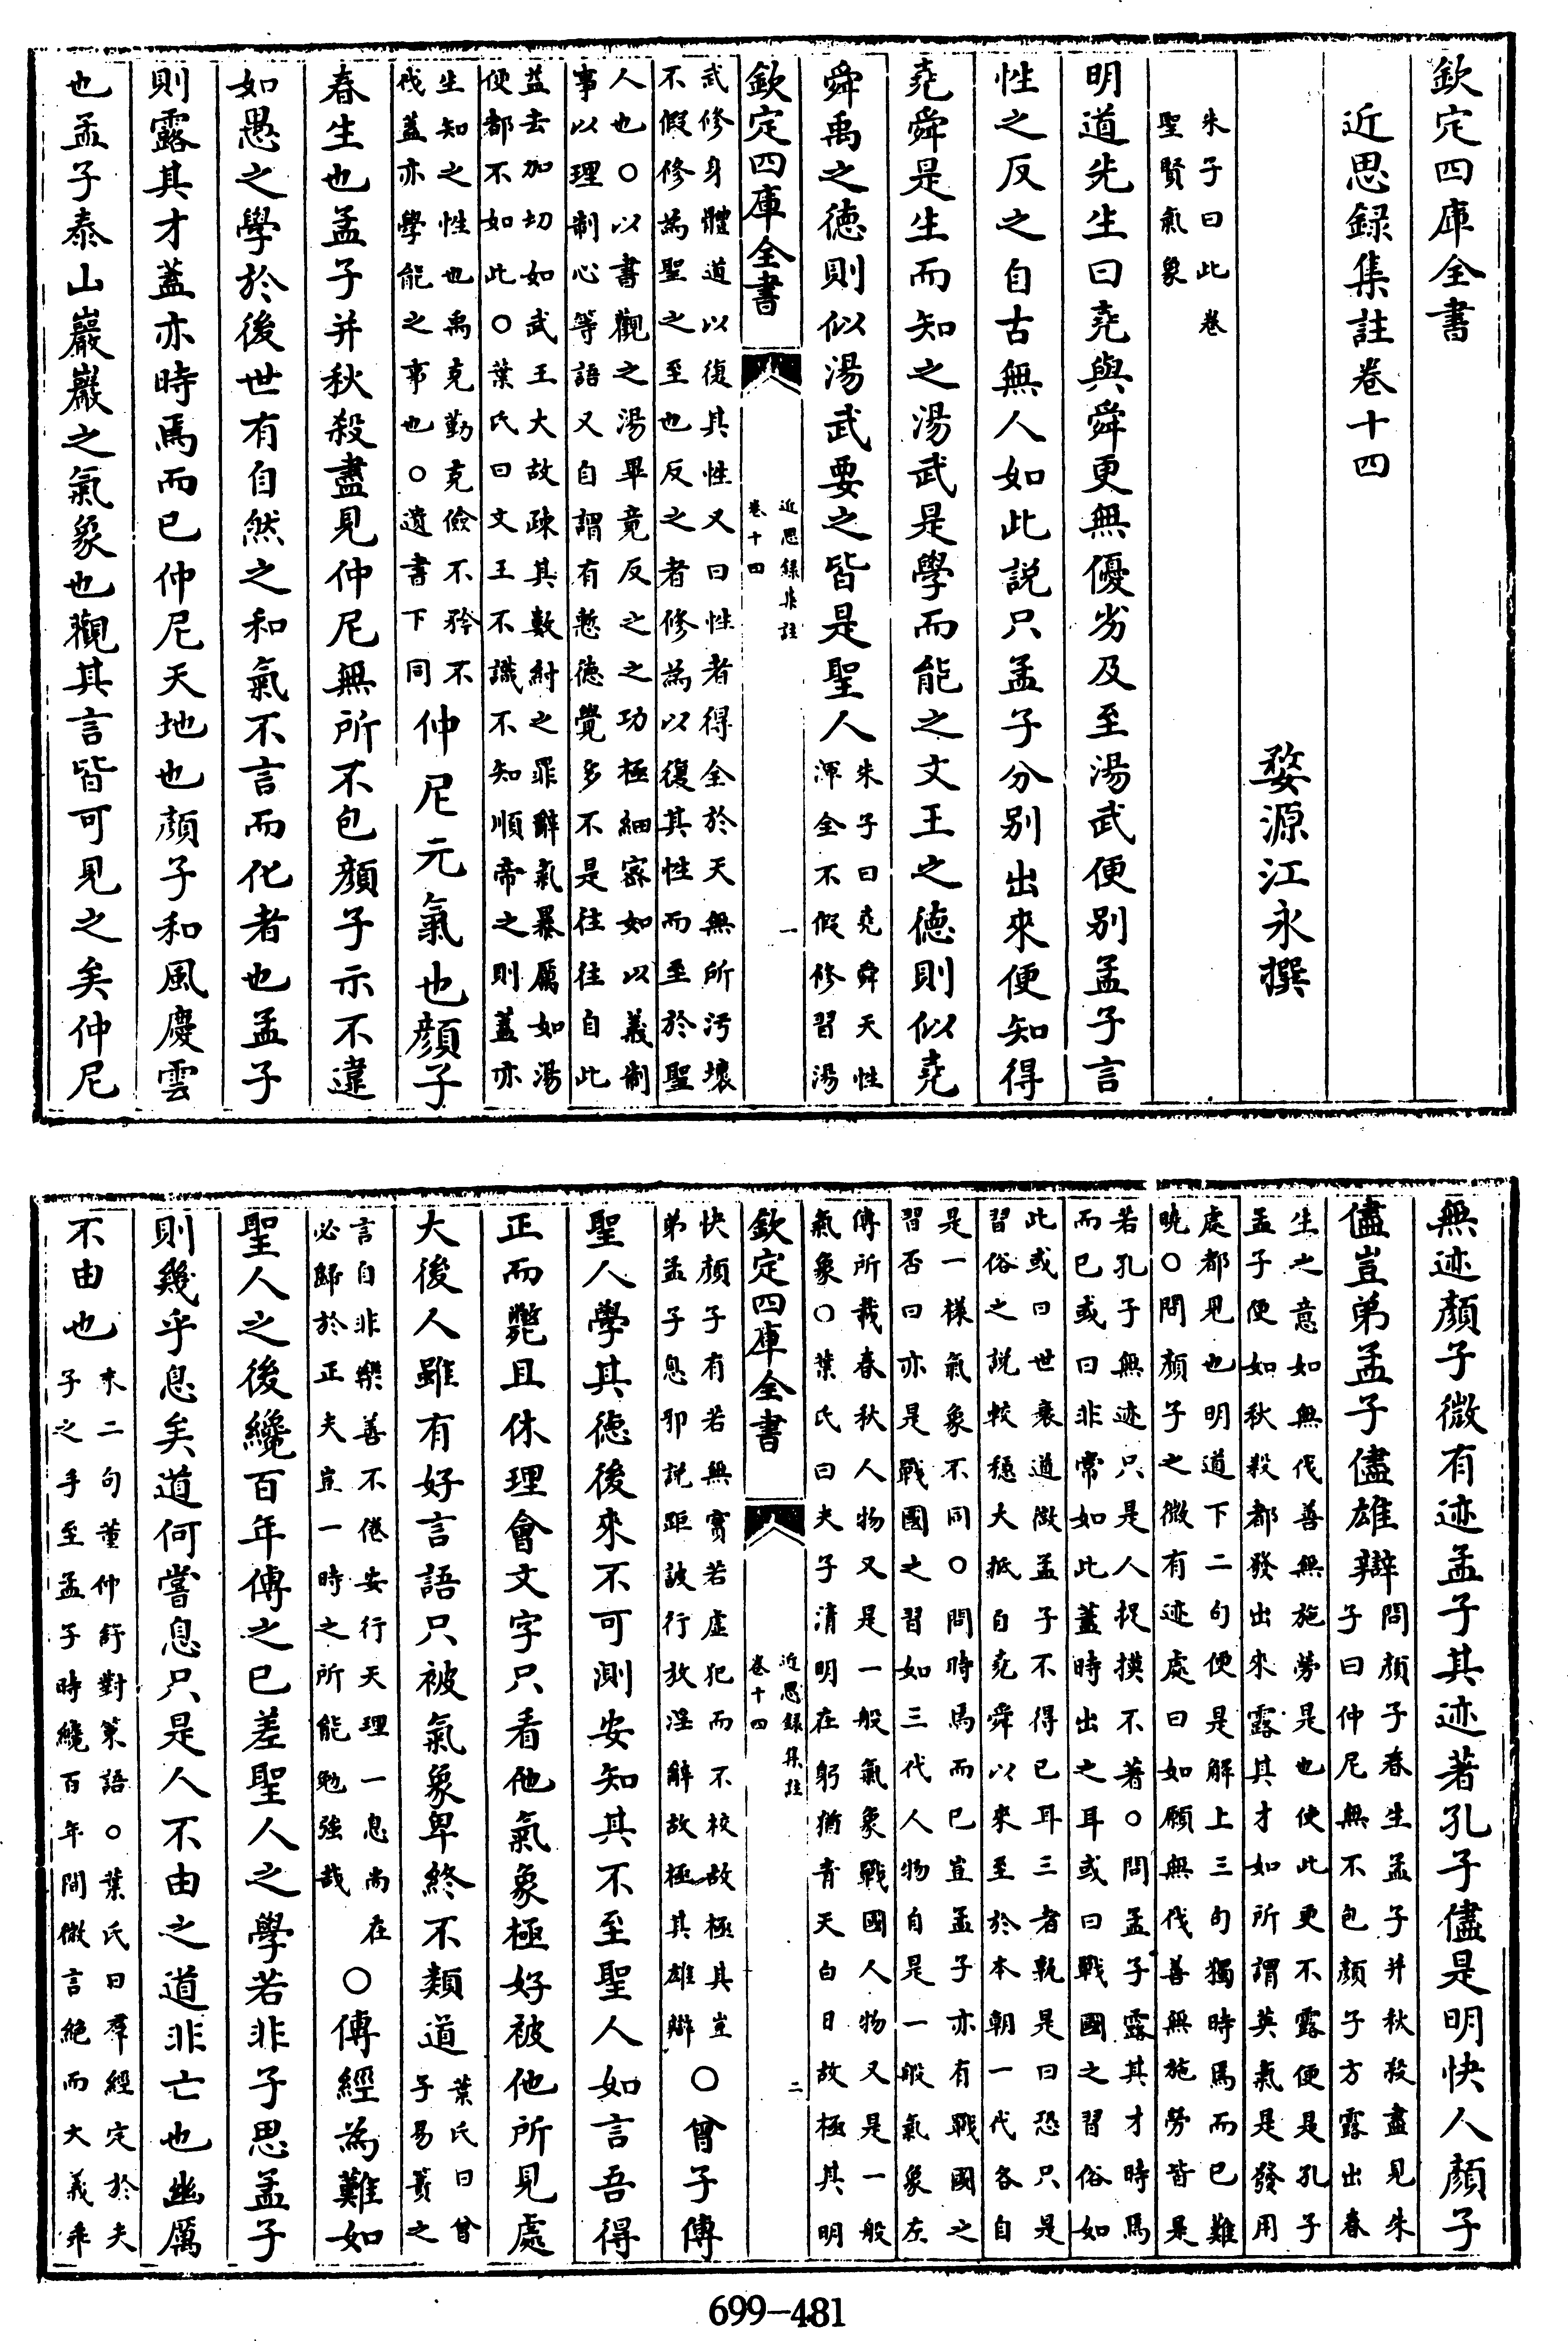 欽定四庫全書
近思録集註卷十四
婺源江永撰
朱子曰此卷
聖賢氣象
明道先生曰堯與舜更無優劣及至湯武便别孟子言
性之反之自古無人如此説只孟子分别出來便知得
堯舜是生而知之湯武是學而能之文王之德則似堯
舜禹之德則似湯武要之皆是聖人朱子曰堯舜天性
渾全不假修習湯
欽定四庫全書
近思録集註
卷十四
一
武修身體道以復其性又曰性者得全於天無所污壞
不假修為聖之至也反之者修為以復其性而至於聖
人也○以書觀之湯畢竟反之之功極細密如以義制
事以理制心等語又自謂有慙德覺多不是往往自此
益去加切如武王大故疎其數紂之罪辭氣暴厲如湯
便都不如此○葉氏曰文王不識不知順帝之則蓋亦
生知之性也禹克勤克儉不矜不
伐蓋亦學能之事也○遺書下同仲尼元氣也顔子
春生也孟子并秋殺盡見仲尼無所不包顔子示不違
如愚之學於後世有自然之和氣不言而化者也孟子
則露其才蓋亦時焉而已仲尼天地也顔子和風慶雲
也孟子泰山巖巖之氣象也觀其言皆可見之矣仲尼
無迹顔子微有迹孟子其迹著孔子儘是明快人顔子
儘豈弟孟子儘雄辯問顔子春生孟子并秋殺盡見朱
子曰仲尼無不包顔子方露出春
生之意如無伐善無施勞是也使此更不露便是孔子
孟子便如秋殺都發出來露其才如所謂英氣是發用
處都見也明道下二句便是解上三句獨時焉而已難
曉○問顔子之微有迹處曰如願無伐善無施勞皆是
若孔子無迹只是人捉摸不著○問孟子露其才時焉
而已或曰非常如此蓋時出之耳或曰戰國之習俗如
此或曰世衰道微孟子不得已耳三者孰是曰恐只是
習俗之説較穏大抵自堯舜以來至於本朝一代各自
是一様氣象不同○問時焉而已豈孟子亦有戰國之
習否曰亦是戰國之習如三代人物自是一般氣象左
傳所載春秋人物又是一般氣象戰國人物又是一般
氣象○葉氏曰夫子清明在躬猶青天白日故極其明
欽定四庫全書
近思録集註
卷十四
二
快顔子有若無實若虛犯而不校故極其豈
弟孟子息邪説距詖行放淫辭故極其雄辯○曾子傳
聖人學其德後來不可測安知其不至聖人如言吾得
正而斃且休理會文字只看他氣象極好被他所見處
大後人雖有好言語只被氣象卑終不類道葉氏曰曾
子易簀之
言自非樂善不倦安行天理一息尚在
必歸於正夫豈一時之所能勉強哉○傳經為難如
聖人之後纔百年傳之已差聖人之學若非子思孟子
則幾乎息矣道何嘗息只是人不由之道非亡也幽厲
不由也末二句董仲舒對策語○葉氏曰羣經定於夫
子之手至孟子時纔百年間微言絶而大義乖
699-481